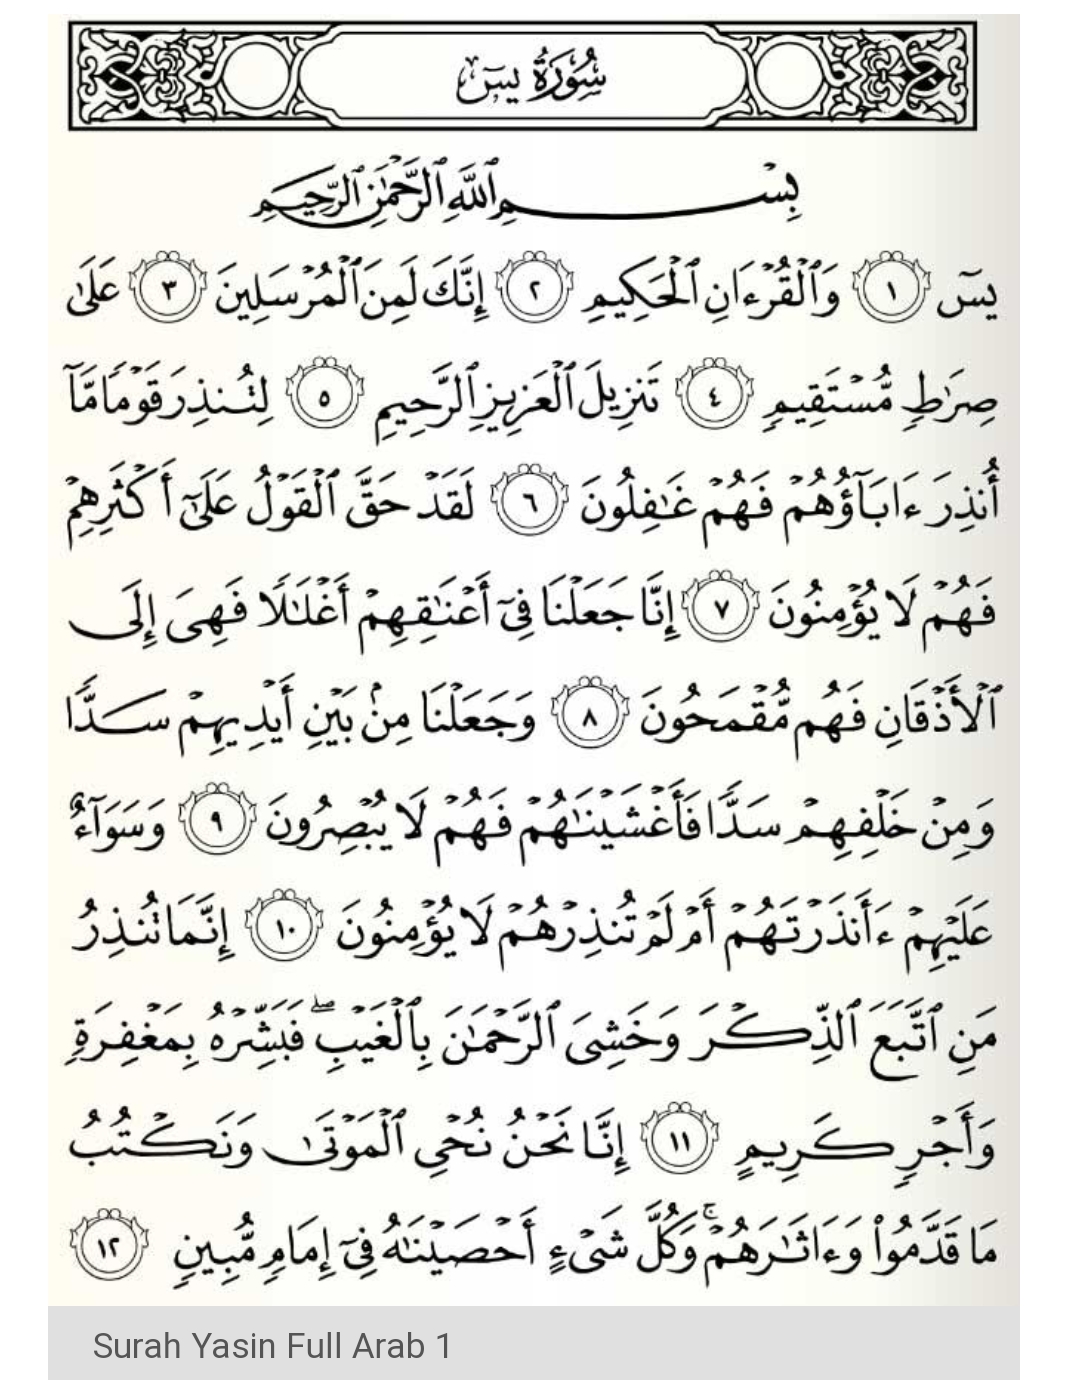 سُورَةُ يسٓ
بِسْمِ ٱللَّهِ ٱلرَّحْمَٰنِ ٱلرَّحِيمِ
يسٓ ١ وَٱلْقُرْءَانِ ٱلْحَكِيمِ ٢ إِنَّكَ لَمِنَ ٱلْمُرْسَلِينَ ٣ عَلَىٰ
صِرَٰطٍ مُّسْتَقِيمٍ ٤ تَنزِيلَ ٱلْعَزِيزِ ٱلرَّحِيمِ ٥ لِتُنذِرَ قَوْمًا مَّآ
أُنذِرَ ءَابَآؤُهُمْ فَهُمْ غَٰفِلُونَ ٦ لَقَدْ حَقَّ ٱلْقَوْلُ عَلَىٰٓ أَكْثَرِهِمْ
فَهُمْ لَا يُؤْمِنُونَ ٧ إِنَّا جَعَلْنَا فِىٓ أَعْنَٰقِهِمْ أَغْلَٰلًا فَهِىَ إِلَى
ٱلْأَذْقَانِ فَهُم مُّقْمَحُونَ ٨ وَجَعَلْنَا مِنۢ بَيْنِ أَيْدِيهِمْ سَدًّا
وَمِنْ خَلْفِهِمْ سَدًّا فَأَغْشَيْنَٰهُمْ فَهُمْ لَا يُبْصِرُونَ ٩ وَسَوَآءٌ
عَلَيْهِمْ ءَأَنذَرْتَهُمْ أَمْ لَمْ تُنذِرْهُمْ لَا يُؤْمِنُونَ ١٠ إِنَّمَا تُنذِرُ
مَنِ ٱتَّبَعَ ٱلذِّكْرَ وَخَشِىَ ٱلرَّحْمَٰنَ بِٱلْغَيْبِ ۖ فَبَشِّرْهُ بِمَغْفِرَةٍ
وَأَجْرٍ كَرِيمٍ ١١ إِنَّا نَحْنُ نُحْىِ ٱلْمَوْتَىٰ وَنَكْتُبُ
مَا قَدَّمُوا۟ وَءَاثَٰرَهُمْ ۚ وَكُلَّ شَىْءٍ أَحْصَيْنَٰهُ فِىٓ إِمَامٍ مُّبِينٍ ١٢
Surah Yasin Full Arab 1